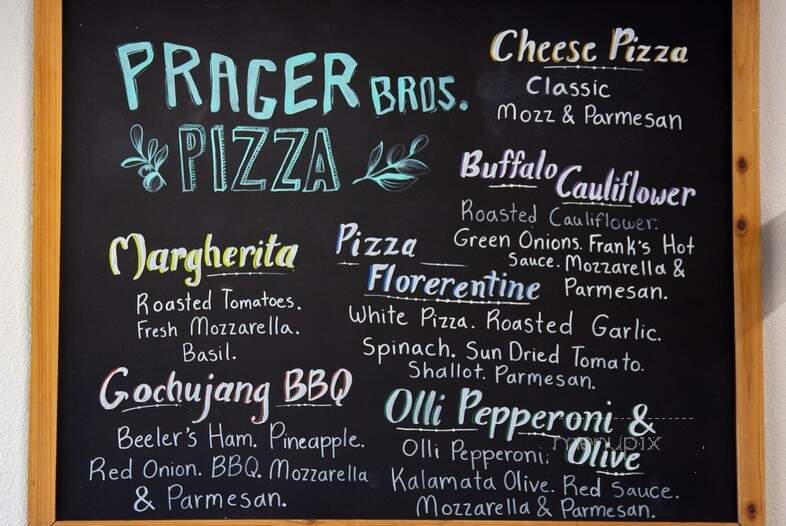 PRAGER BROS.
PIZZA
Cheese Pizza
Classic
Mozz & Parmesan
Buffalo Cauliflower
Roasted Cauliflower.
Green Onions. Frank's Hot
Sauce. Mozzarella &
Parmesan.
Margherita
Roasted Tomatoes.
Fresh Mozzarella.
Basil.
Pizza
Florerentine
White Pizza. Roasted Garlic.
Spinach. Sun Dried Tomato.
Shallot. Parmesan.
Gochujang BBQ
Beeler's Ham. Pineapple.
Red Onion. BBQ. Mozzarella
& Parmesan.
Olli Pepperoni &
Olive
Olli Pepperoni.
Kalamata Olive. Red Sauce.
Mozzarella & Parmesan.
menupix